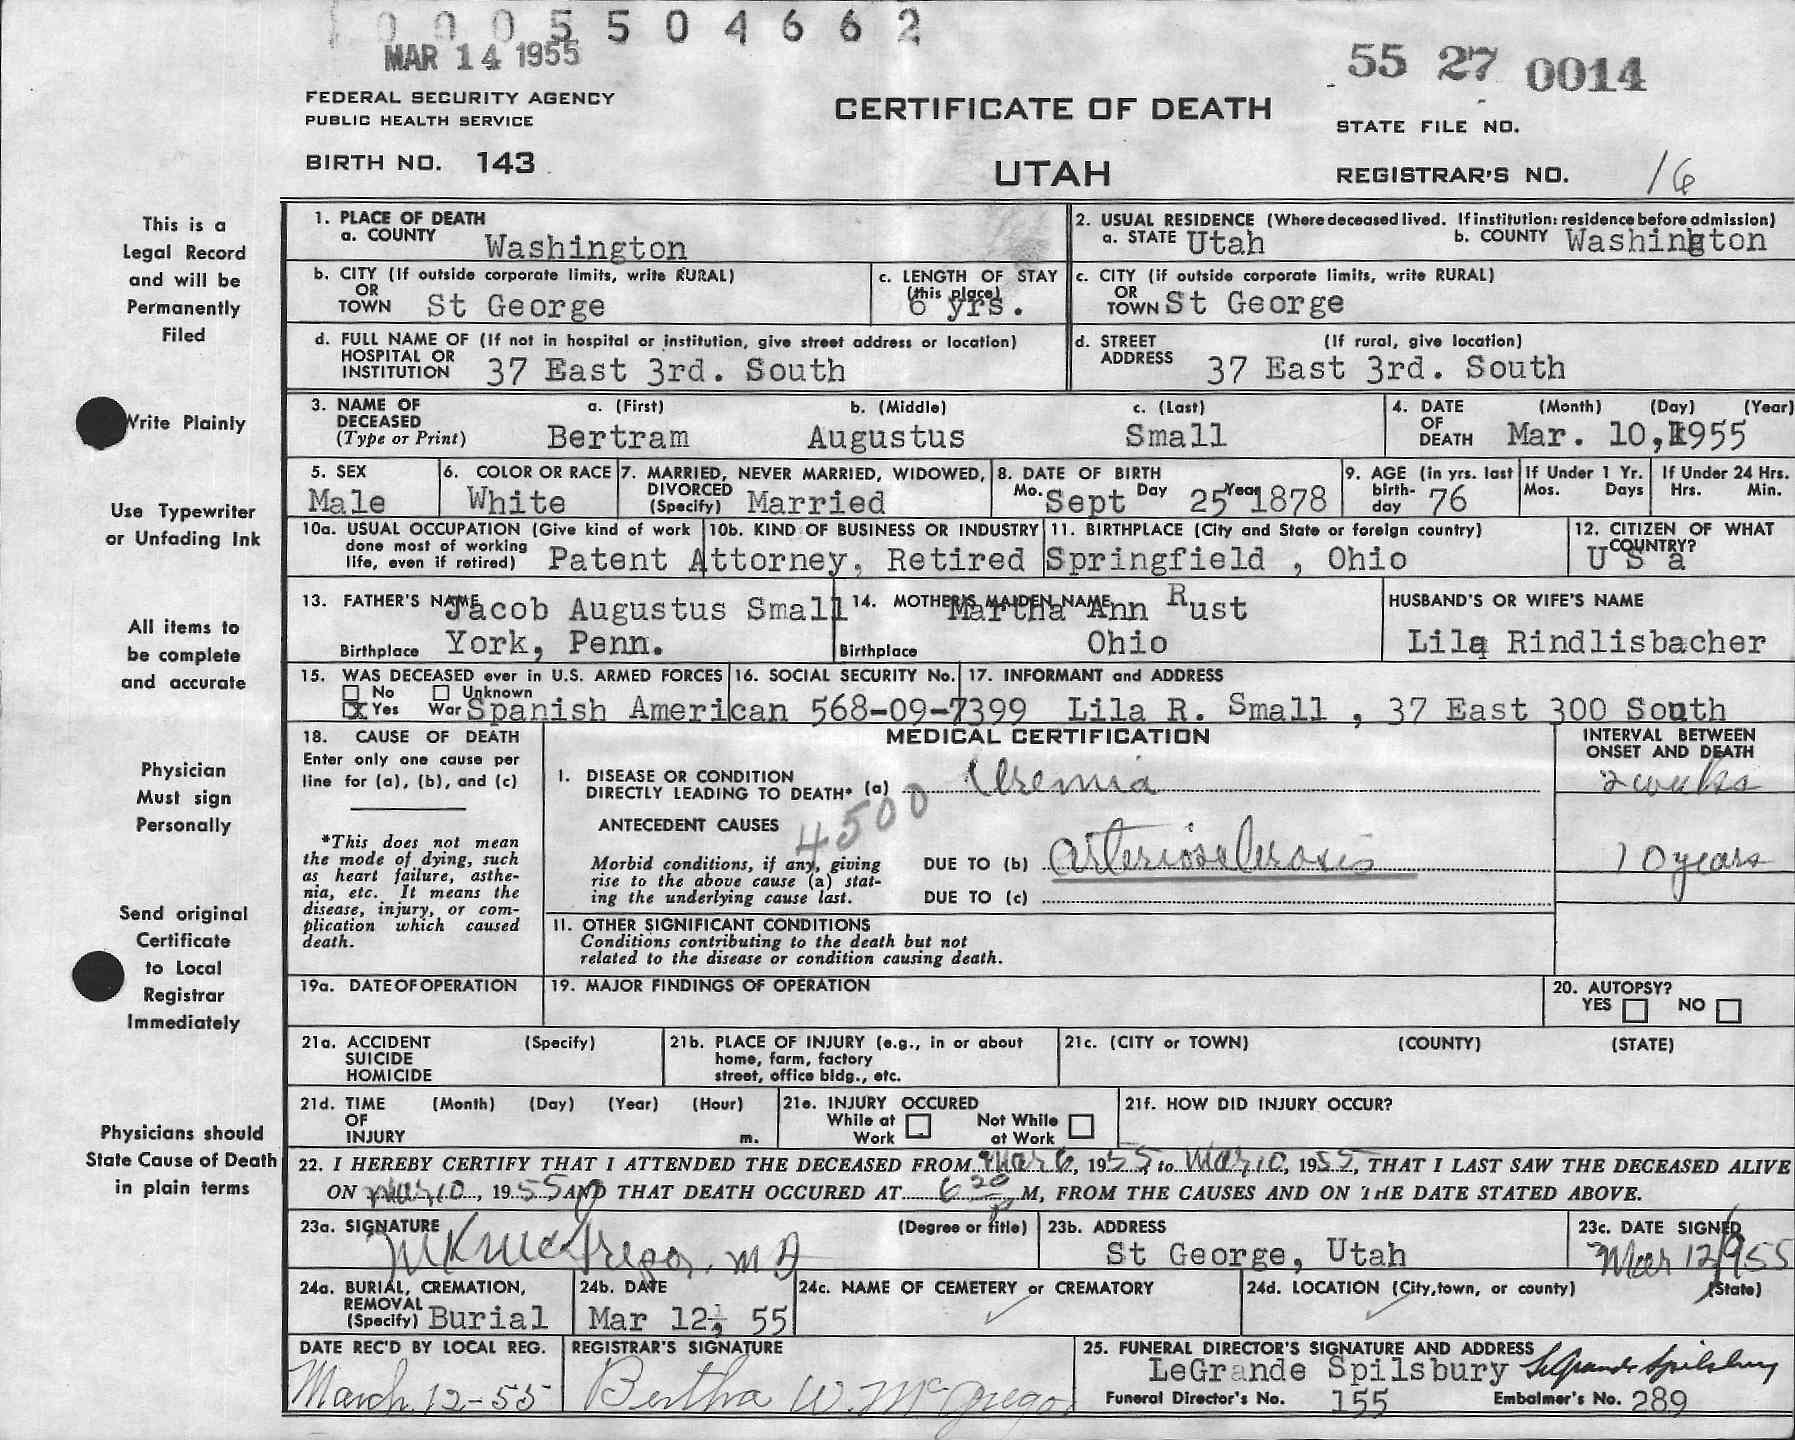 0005504662
MAR 14 1955
55 27 0014
FEDERAL SECURITY AGENCY
PUBLIC HEALTH SERVICE
CERTIFICATE OF DEATH
STATE FILE NO.
BIRTH NO. 143
UTAH
REGISTRAR'S NO. 16
This is a
Legal Record
and will be
Permanently
Filed
Write Plainly
Use Typewriter
or Unfading Ink
All items to
be complete
and accurate
Physician
Must sign
Personally
Send original
Certificate
to Local
Registrar
Immediately
Physicians should
State Cause of Death
in plain terms
1. PLACE OF DEATH
a. COUNTY Washington
2. USUAL RESIDENCE (Where deceased lived. If institution: residence before admission)
a. STATE Utah b. COUNTY Washington
b. CITY (If outside corporate limits, write RURAL)
OR
TOWN St George
c. LENGTH OF STAY
(this place)
6 yrs.
c. CITY (if outside corporate limits, write RURAL)
OR
TOWN St George
d. FULL NAME OF (If not in hospital or institution, give street address or location)
HOSPITAL OR
INSTITUTION 37 East 3rd. South
d. STREET (If rural, give location)
ADDRESS 37 East 3rd. South
3. NAME OF a. (First) b. (Middle) c. (Last)
DECEASED
(Type or Print) Bertram Augustus Small
4. DATE (Month) (Day) (Year)
OF
DEATH Mar. 10, 1955
5. SEX
Male
6. COLOR OR RACE
White
7. MARRIED, NEVER MARRIED, WIDOWED,
DIVORCED
(Specify) Married
8. DATE OF BIRTH
Mo. Sept Day 25 Year 1878
9. AGE (in yrs. last
birth-
day 76
If Under 1 Yr.
Mos. Days
If Under 24 Hrs.
Hrs. Min.
10a. USUAL OCCUPATION (Give kind of work
done most of working
life, even if retired) Patent Attorney, Retired
10b. KIND OF BUSINESS OR INDUSTRY
11. BIRTHPLACE (City and State or foreign country)
Springfield , Ohio
12. CITIZEN OF WHAT
COUNTRY?
U S a
13. FATHER'S NAME Jacob Augustus Small
Birthplace York, Penn.
14. MOTHER'S MAIDEN NAME Martha Ann Rust
Birthplace Ohio
HUSBAND'S OR WIFE'S NAME
Lila Rindlisbacher
15. WAS DECEASED ever in U.S. ARMED FORCES
No Unknown
X Yes War Spanish American
16. SOCIAL SECURITY No.
568-09-7399
17. INFORMANT and ADDRESS
Lila R. Small , 37 East 300 South
18. CAUSE OF DEATH
Enter only one cause per
line for (a), (b), and (c)
*This does not mean
the mode of dying, such
as heart failure, asthe-
nia, etc. It means the
disease, injury, or com-
plication which caused
death.
MEDICAL CERTIFICATION
INTERVAL BETWEEN
ONSET AND DEATH
I. DISEASE OR CONDITION
DIRECTLY LEADING TO DEATH* (a) Uremia 2 weeks
ANTECEDENT CAUSES
4500
Morbid conditions, if any, giving
rise to the above cause (a) stat-
ing the underlying cause last.
DUE TO (b) arteriosclerosis 10 years
DUE TO (c)
11. OTHER SIGNIFICANT CONDITIONS
Conditions contributing to the death but not
related to the disease or condition causing death.
19a. DATE OF OPERATION
19. MAJOR FINDINGS OF OPERATION
20. AUTOPSY?
YES NO
21a. ACCIDENT (Specify)
SUICIDE
HOMICIDE
21b. PLACE OF INJURY (e.g., in or about
home, farm, factory
street, office bldg., etc.
21c. (CITY or TOWN) (COUNTY) (STATE)
21d. TIME (Month) (Day) (Year) (Hour)
OF
INJURY m.
21e. INJURY OCCURED
While at Not While
Work at Work
21f. HOW DID INJURY OCCUR?
22. I HEREBY CERTIFY THAT I ATTENDED THE DECEASED FROM Mar 6, 1955, to Mar 10, 1955, THAT I LAST SAW THE DECEASED ALIVE
ON Mar 10, 1955 AND THAT DEATH OCCURED AT 6 20 P M, FROM THE CAUSES AND ON THE DATE STATED ABOVE.
23a. SIGNATURE (Degree or title)
McGregor, M D
23b. ADDRESS
St George, Utah
23c. DATE SIGNED
Mar 12 1955
24a. BURIAL, CREMATION,
REMOVAL
(Specify) Burial
24b. DATE
Mar 12, 55
24c. NAME OF CEMETERY or CREMATORY
24d. LOCATION (City, town, or county) (State)
DATE REC'D BY LOCAL REG.
March 12-55
REGISTRAR'S SIGNATURE
Bertha W. McGregor
25. FUNERAL DIRECTOR'S SIGNATURE AND ADDRESS
LeGrande Spilsbury LeGrande Spilsbury
Funeral Director's No. 155 Embalmer's No. 289